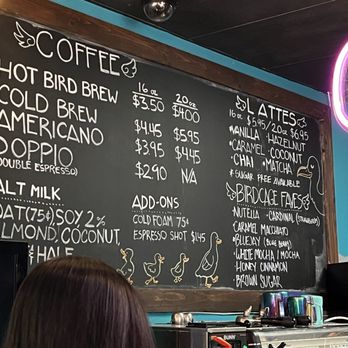 COFFEE
16 oz 20 oz
HOT BIRD BREW $3.50 $4.00
COLD BREW $4.45 $5.45
AMERICANO $3.95 $4.45
DOPPIO $2.90 N/A
(DOUBLE ESPRESSO)
ALT MILK
OAT (75¢) SOY 2%
ALMOND, COCONUT
HALF
ADD-ONS
COLD FOAM 75¢
ESPRESSO SHOT $1.45
LATTES
16 oz $5.95/20 oz $6.95
VANILLA HAZELNUT
CARAMEL COCONUT
CHAI * MATCHA
* SUGAR FREE AVAILABLE
BIRDCAGE FAVES
NUTELLA - CARDINAL (STRAWBERRY)
CARAMEL MACCHIATO
BLUEJAY (BLUEBERRY)
WHITE MOCHA/MOCHA
HONEY CINNAMON
BROWN SUGAR
BUNN